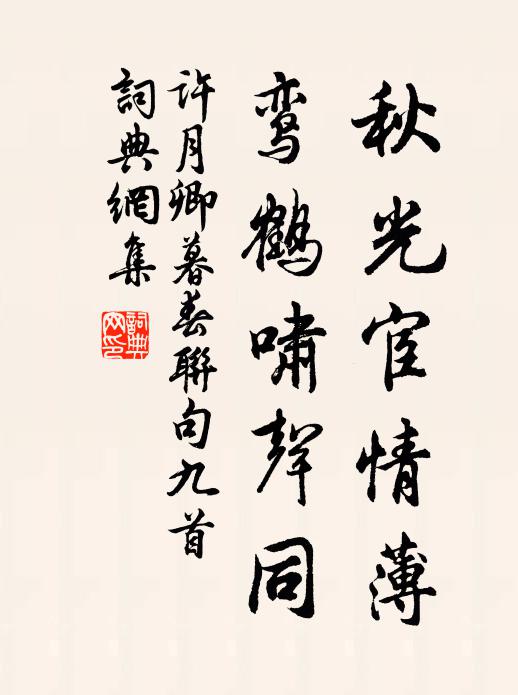 秋光宦情薄
鸾鹤啸聲同
许月卿暮春聯句九首
詞典網集
詞典网印